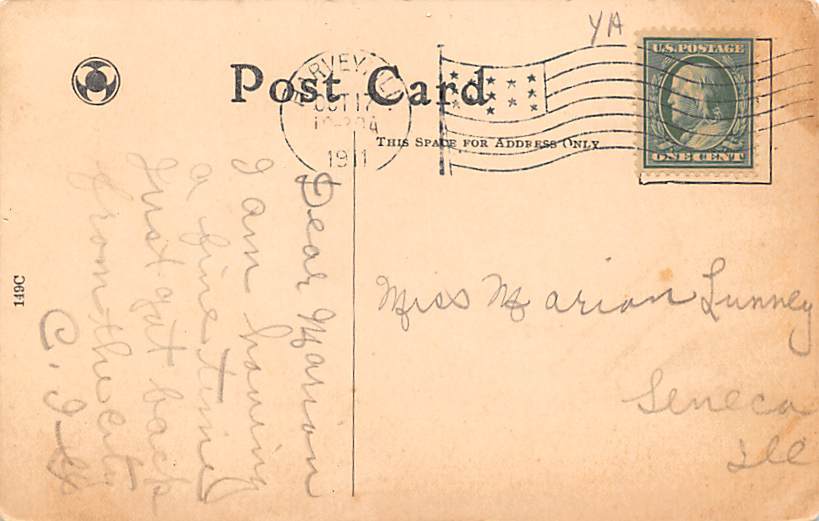 YA
Post Card
HARVEY, ILL
OCT 17
1911
U.S. POSTAGE
ONE CENT
THIS SPACE FOR ADDRESS ONLY
Dear Marion
I am having
a fine time
Just got back
from the city
C. I.
Miss Marion Lunney
Seneca
Ill
149C